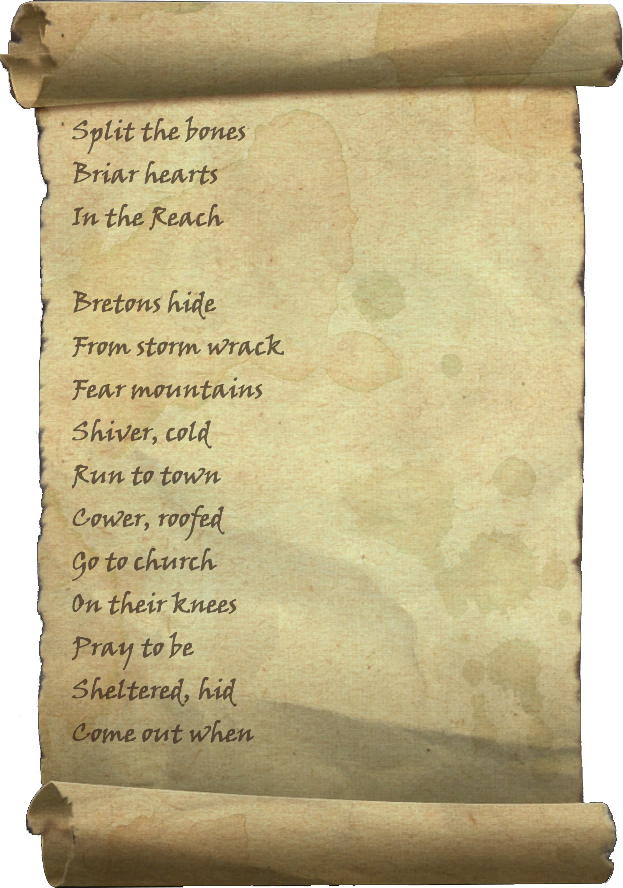 Split the bones
Briar hearts
In the Reach

Bretons hide
From storm wrack
Fear mountains
Shiver, cold
Run to town
Cower, roofed
Go to church
On their knees
Pray to be
Sheltered, hid
Come out when